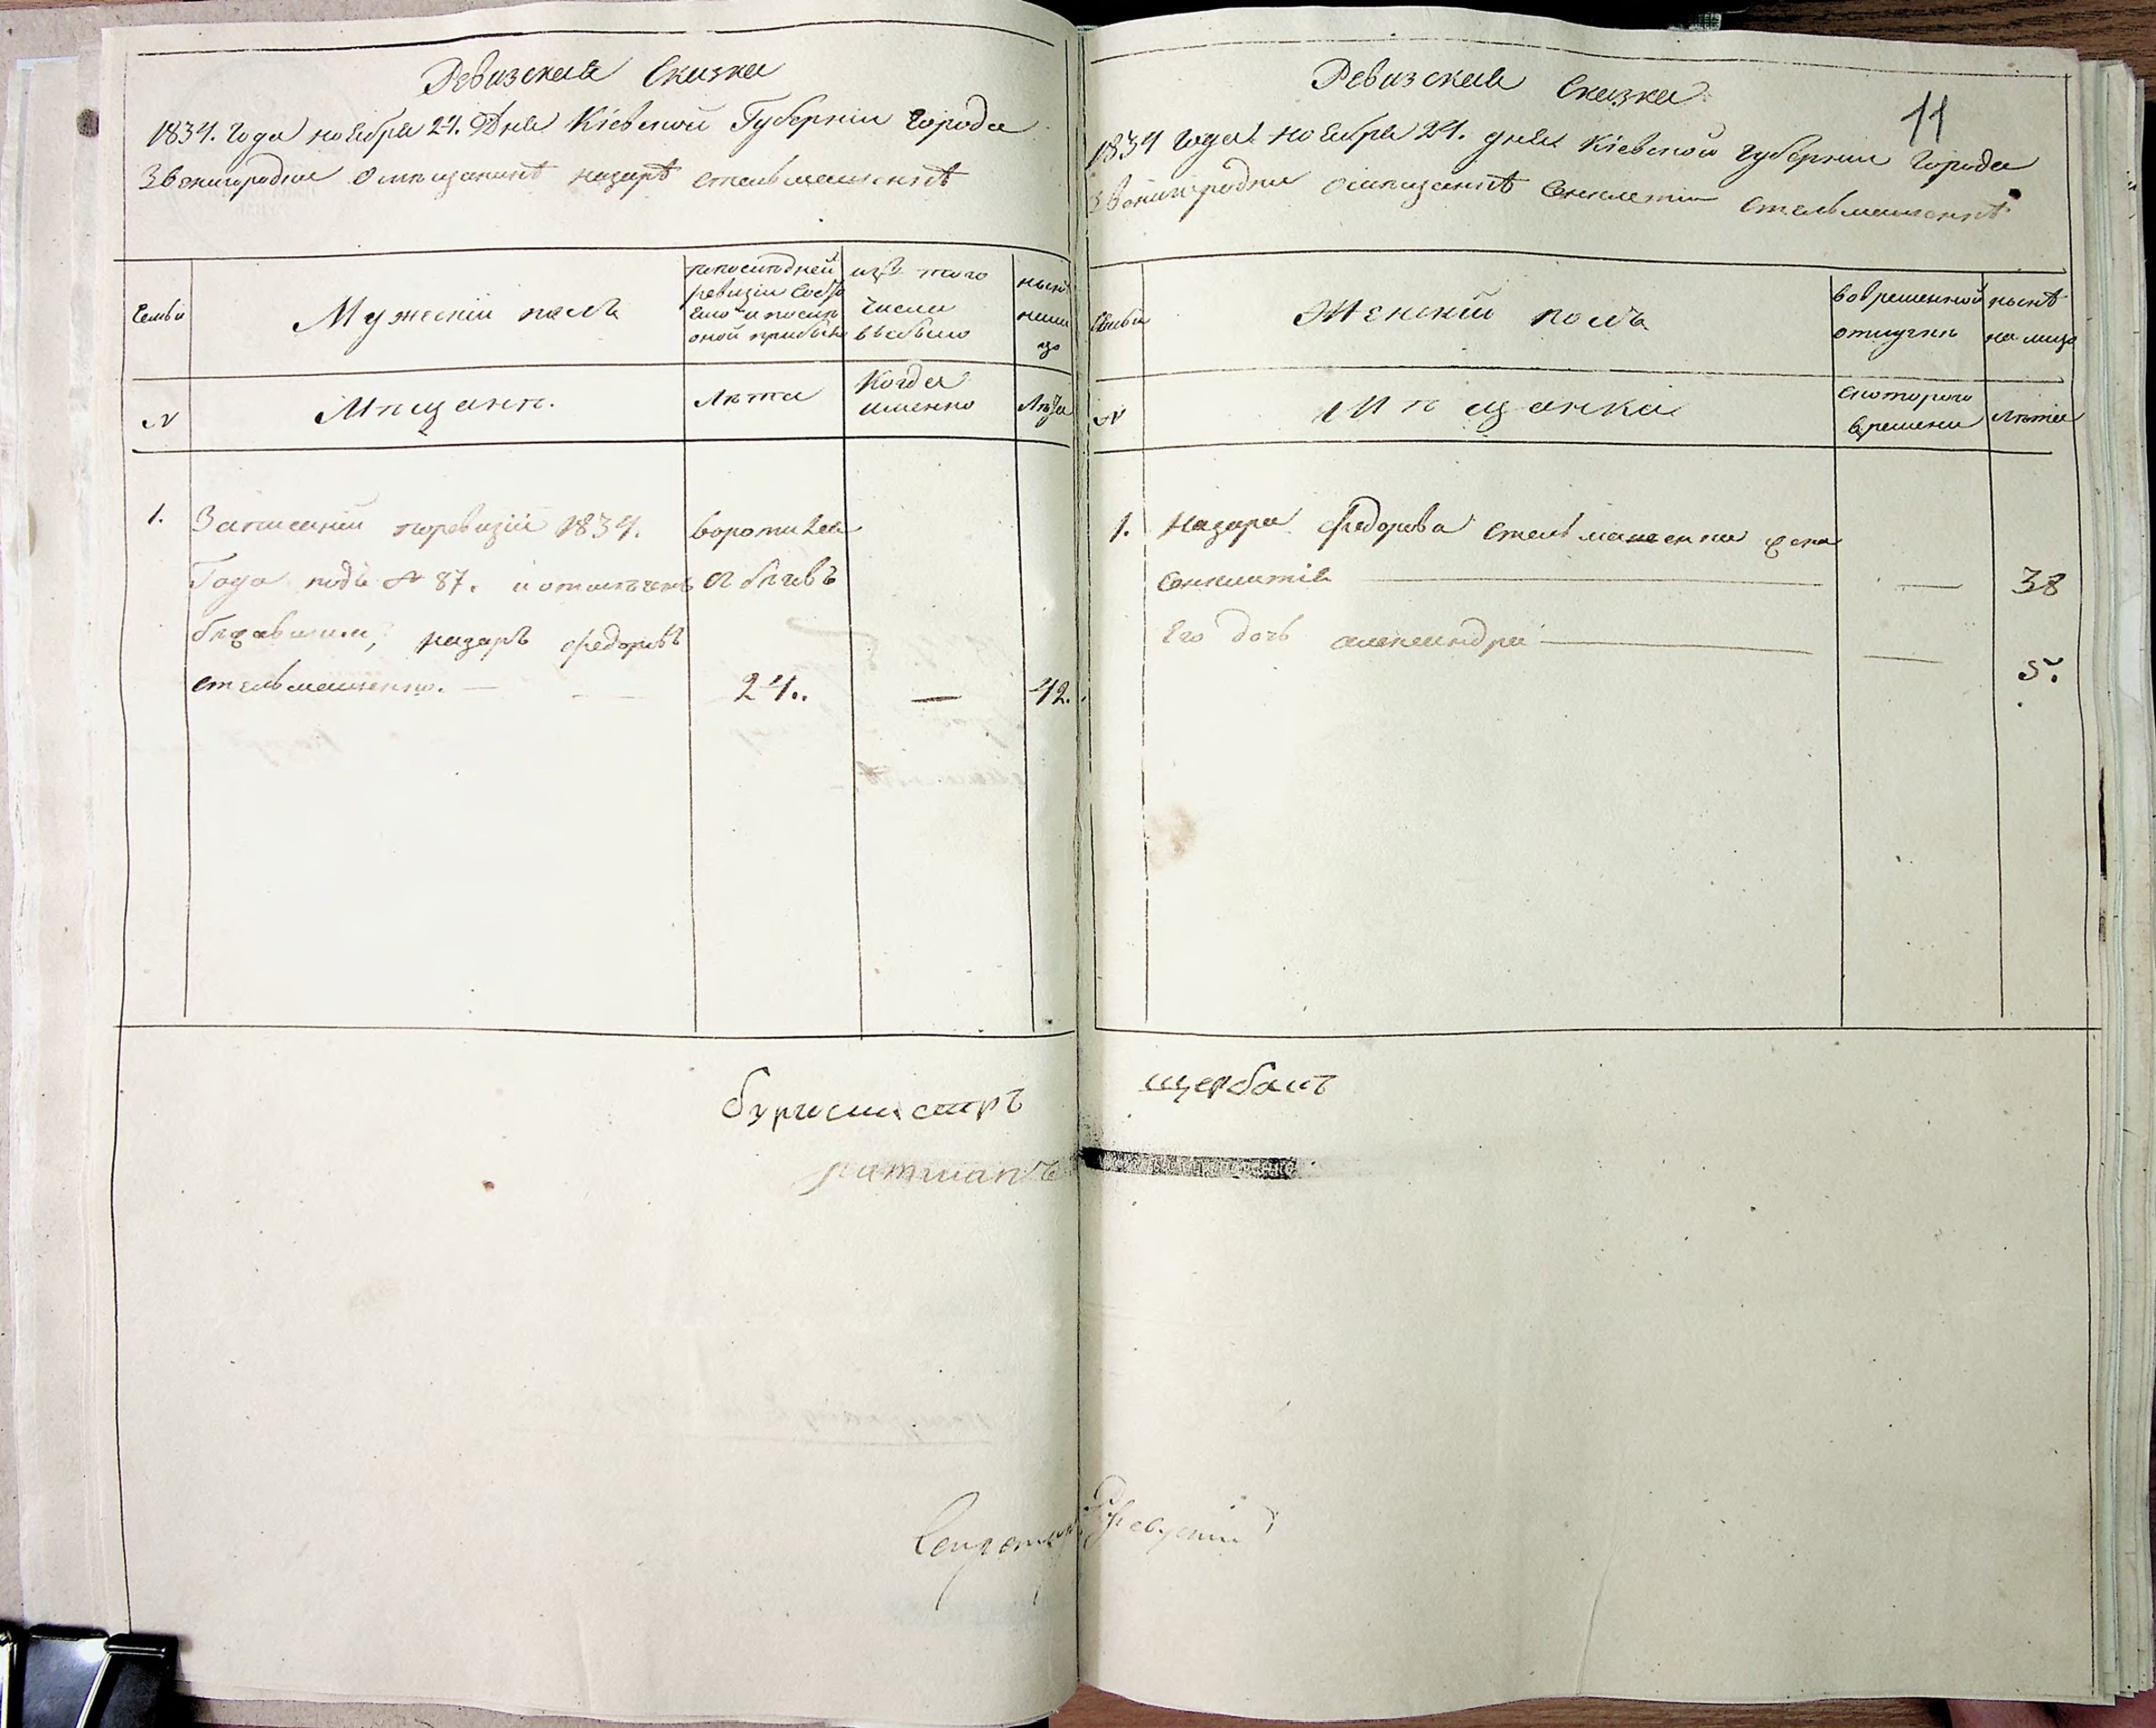 Ревизская Сказка
1834. Года ноября 24. Дня Кіевской Губерніи Города
Звенигородки о мѣщанинѣ назарѣ стельмашенкѣ
Семьи
Мужескій полъ
по последней
ревизіи состо
яло и после
оной прибыло
изъ того
числа
выбыло
ныне
на ли
цо
N
Мѣщане.
Лѣта
Когда
именно
Лѣта
1.
Записаній поревизіи 1834.
воротился
Года подъ N 87. и отмеченъ
бежавшим, назаръ федоровъ
стельмашенко. —
24.
—
42.
бургомистръ
ратманъ
Секретарь
Ревизская Сказка
11
1834 Года ноября 24. дня Кіевской губерніи Города
Звенигородки омѣщанкѣ Синклетіи Стельмашенкѣ
Семьи
Женскій полъ
вовременной
отлучке
нынѣ
на лицо
N
Мѣщанка
скоторого
времени
лѣта
1.
Назара федорова стельмашенка жена
Синклитія
—
38
Его дочь александра
—
5.
щербань